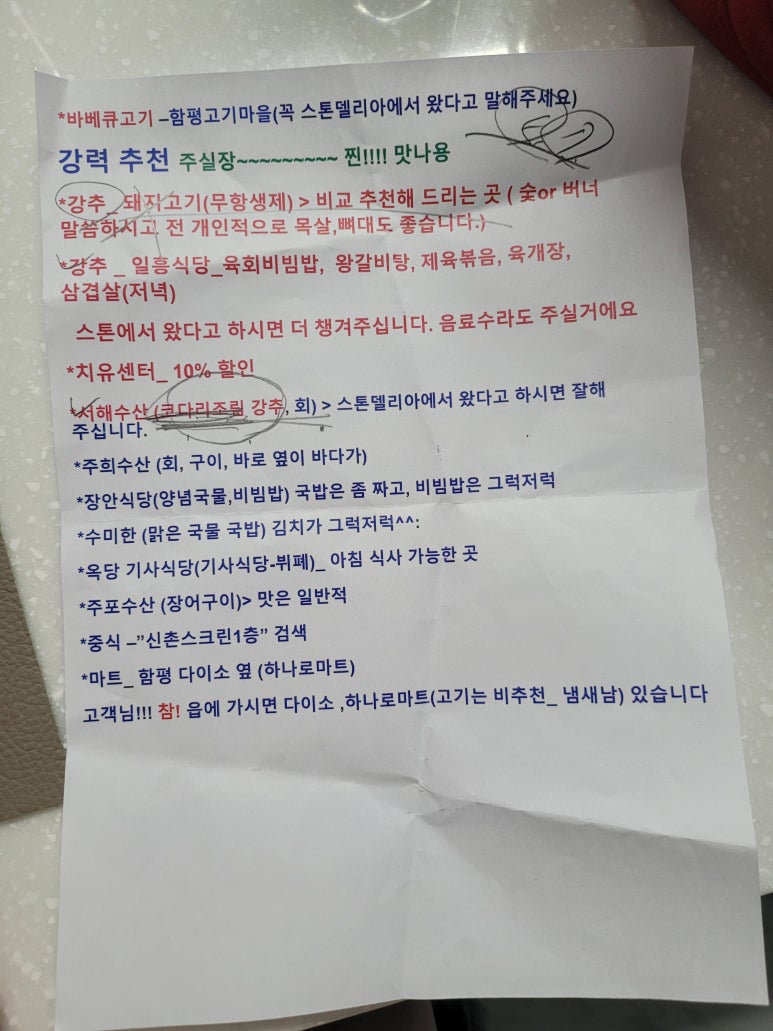 *바베큐고기 –함평고기마을(꼭 스톤델리아에서 왔다고 말해주세요)
강력 추천 주실장~~~~~~~~~ 찐!!!! 맛나용
*강추_ 돼지고기(무항생제) > 비교 추천해 드리는 곳 ( 숯or 버너
말씀하시고 전 개인적으로 목살,뼈대도 좋습니다.)
*강추 _ 일흥식당_육회비빔밥, 왕갈비탕, 제육볶음, 육개장,
삼겹살(저녁)
스톤에서 왔다고 하시면 더 챙겨주십니다. 음료수라도 주실거에요
*치유센터_ 10% 할인
*서해수산 (코다리조림 강추, 회) > 스톤델리아에서 왔다고 하시면 잘해
주십니다.
*주희수산 (회, 구이, 바로 옆이 바다가)
*장안식당(양념국물,비빔밥) 국밥은 좀 짜고, 비빔밥은 그럭저럭
*수미한 (맑은 국물 국밥) 김치가 그럭저럭^^:
*옥당 기사식당(기사식당-뷔폐)_ 아침 식사 가능한 곳
*주포수산 (장어구이)> 맛은 일반적
*중식 –”신촌스크린1층” 검색
*마트_ 함평 다이소 옆 (하나로마트)
고객님!!! 참! 읍에 가시면 다이소 ,하나로마트(고기는 비추천_ 냄새남) 있습니다